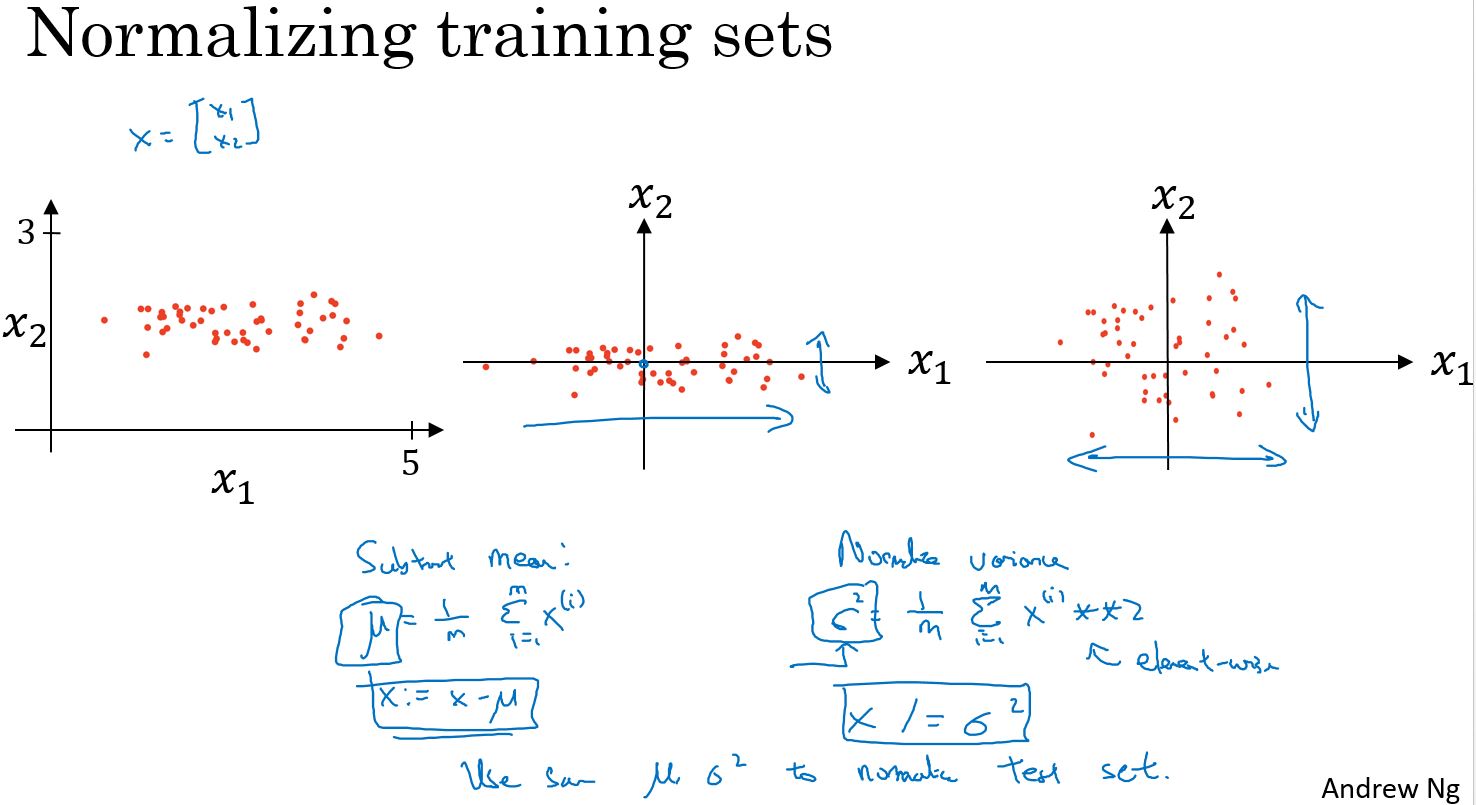 Normalizing training sets
x = [x1 x2]
3
x2
5
x1
x2
x1
x2
x1
Subtract mean:
μ = 1/m Σ_{i=1}^{m} x^(i)
x := x - μ
Normalize variance
σ² = 1/m Σ_{i=1}^{m} x^(i) **2
← element-wise
x /= σ²
Use same μ, σ² to normalize test set.
Andrew Ng